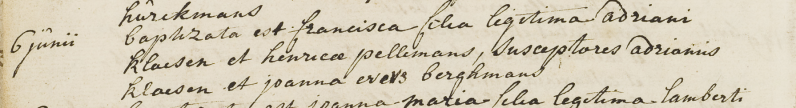 hürckmans
6 jünii baptizata est francisca filia legitima adriani
klaesen et henricæ pellemans, susceptores adrianus
klaesen et joanna evers berghmans
est joanna-maria filia legitima lamberti